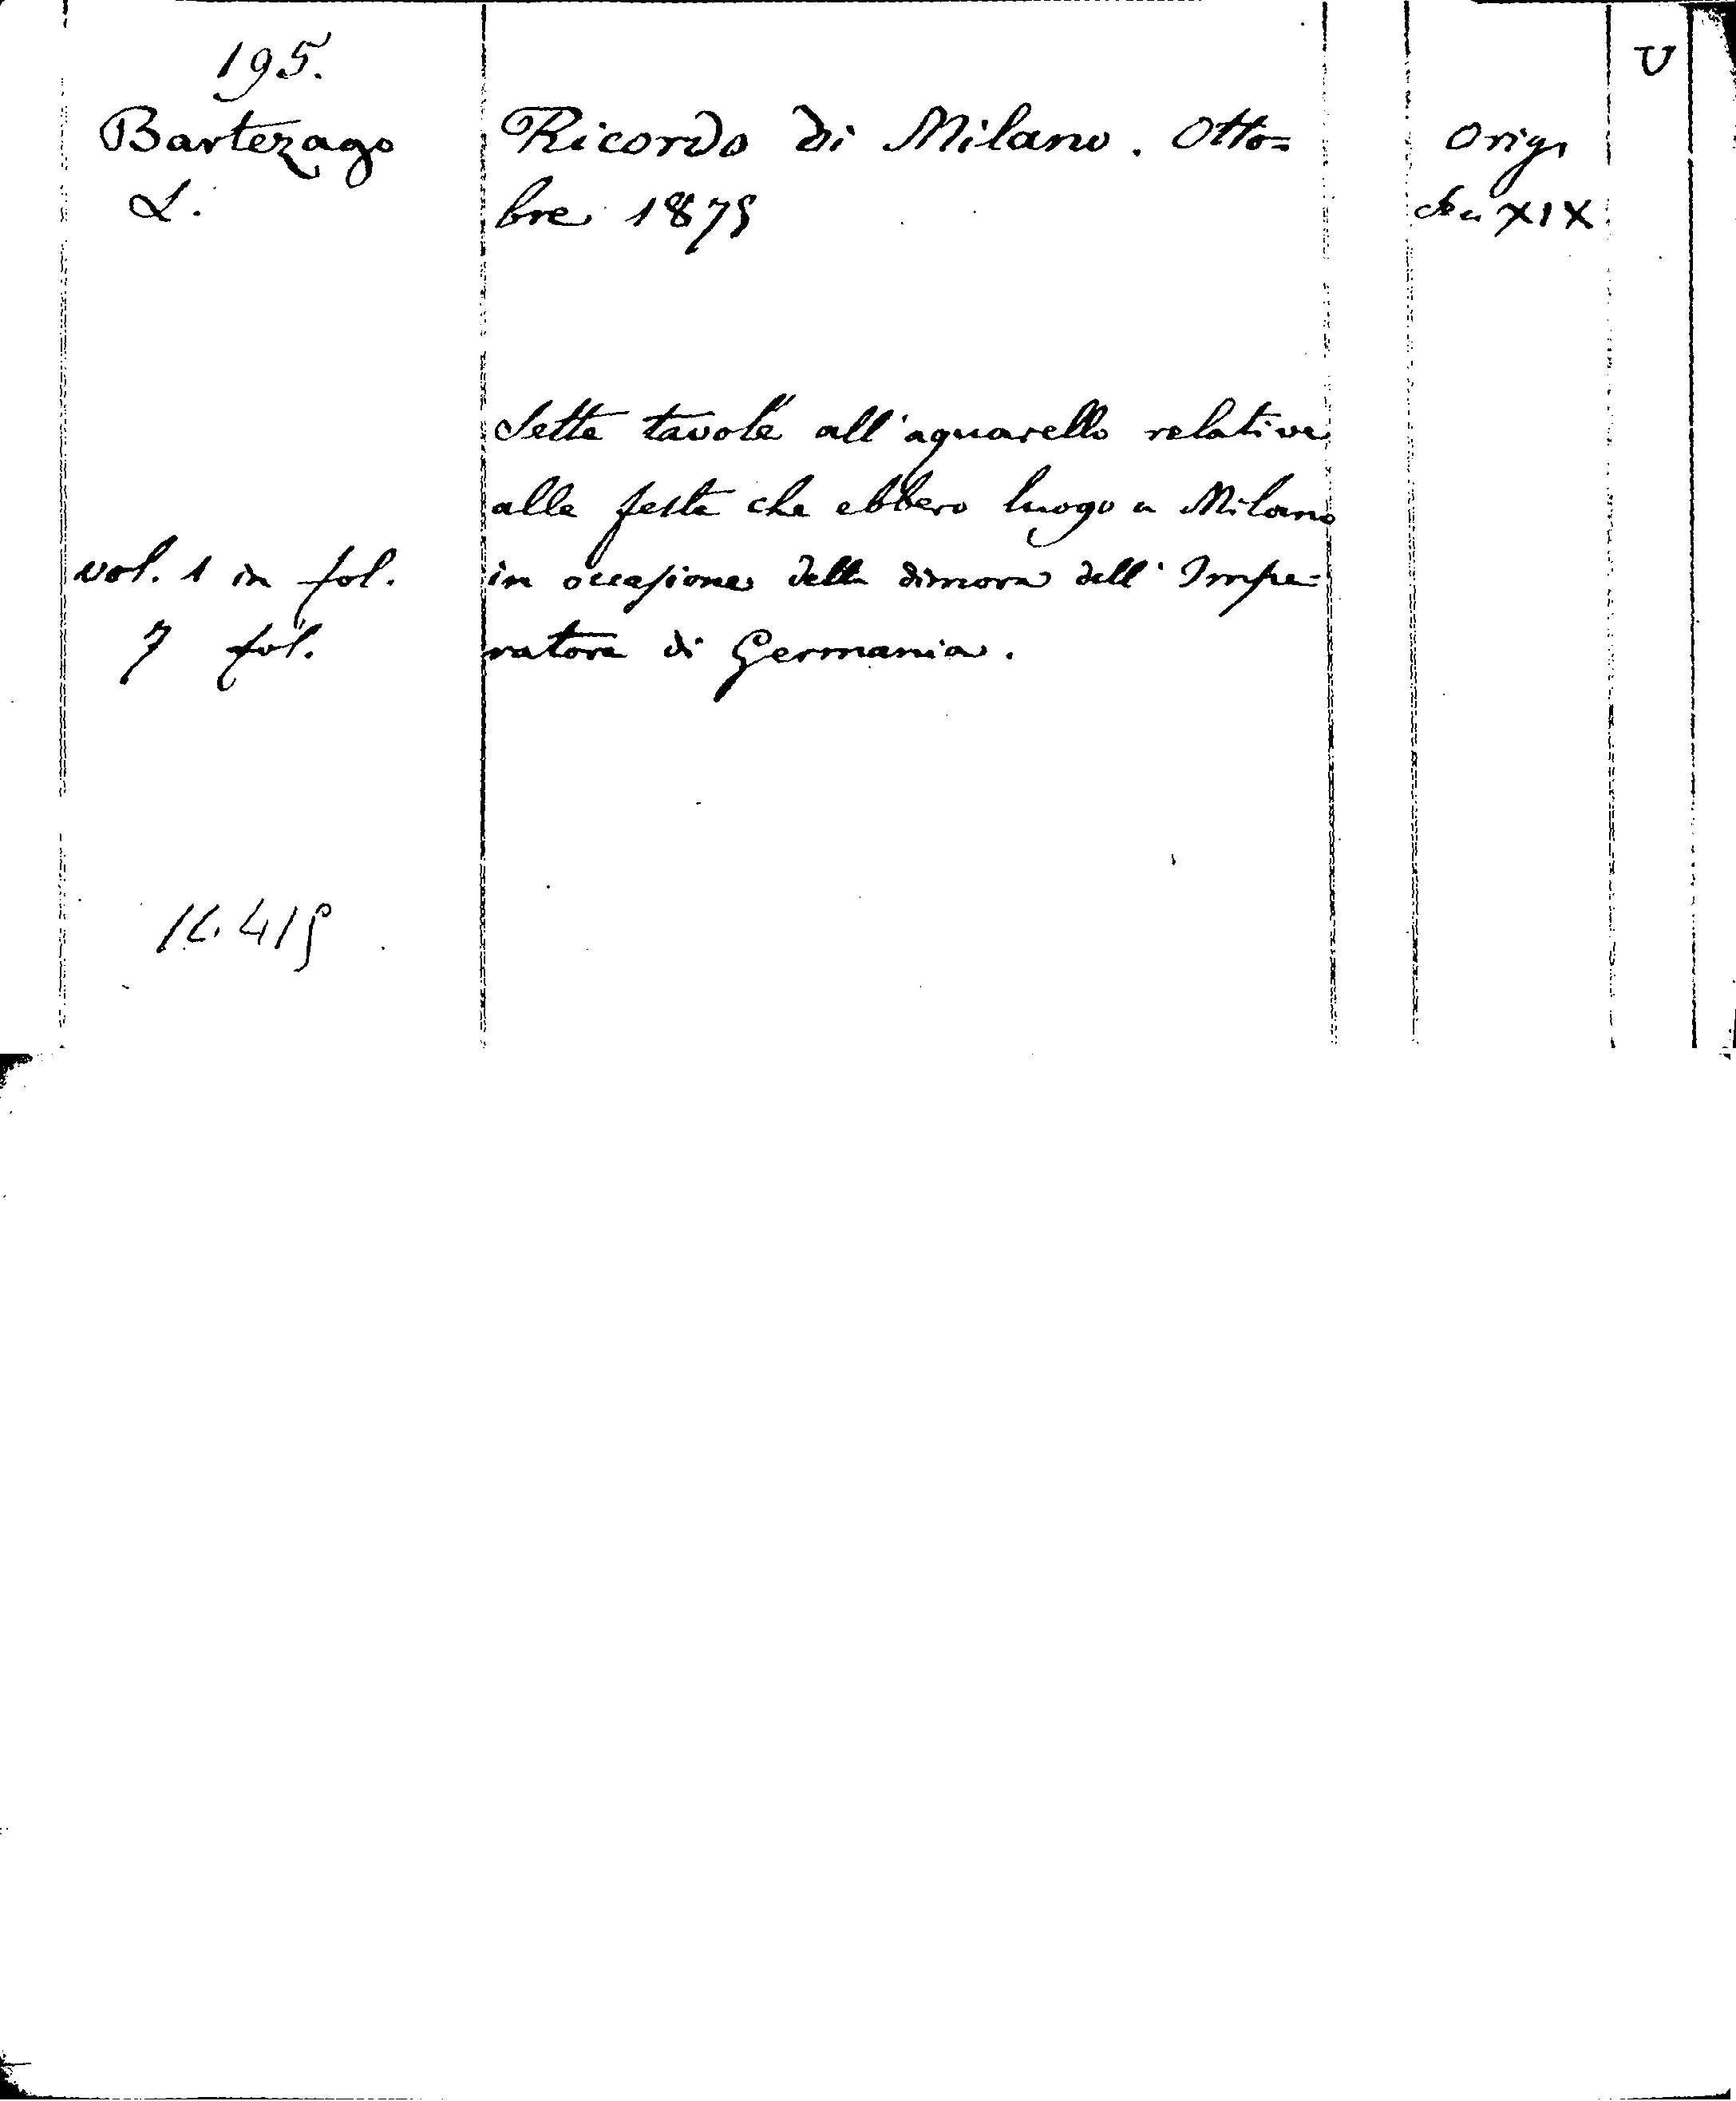 195.
U
Bartezago
L.
Ricordo di Milano. Otto=
bre 1875
Orig.
Sec XIX
Sette tavole all'aquarello relative
alle feste che ebbero luogo a Milano
in occasione della dimora dell'Impe=
ratore di Germania.
vol. 1 in fol.
7 fol.